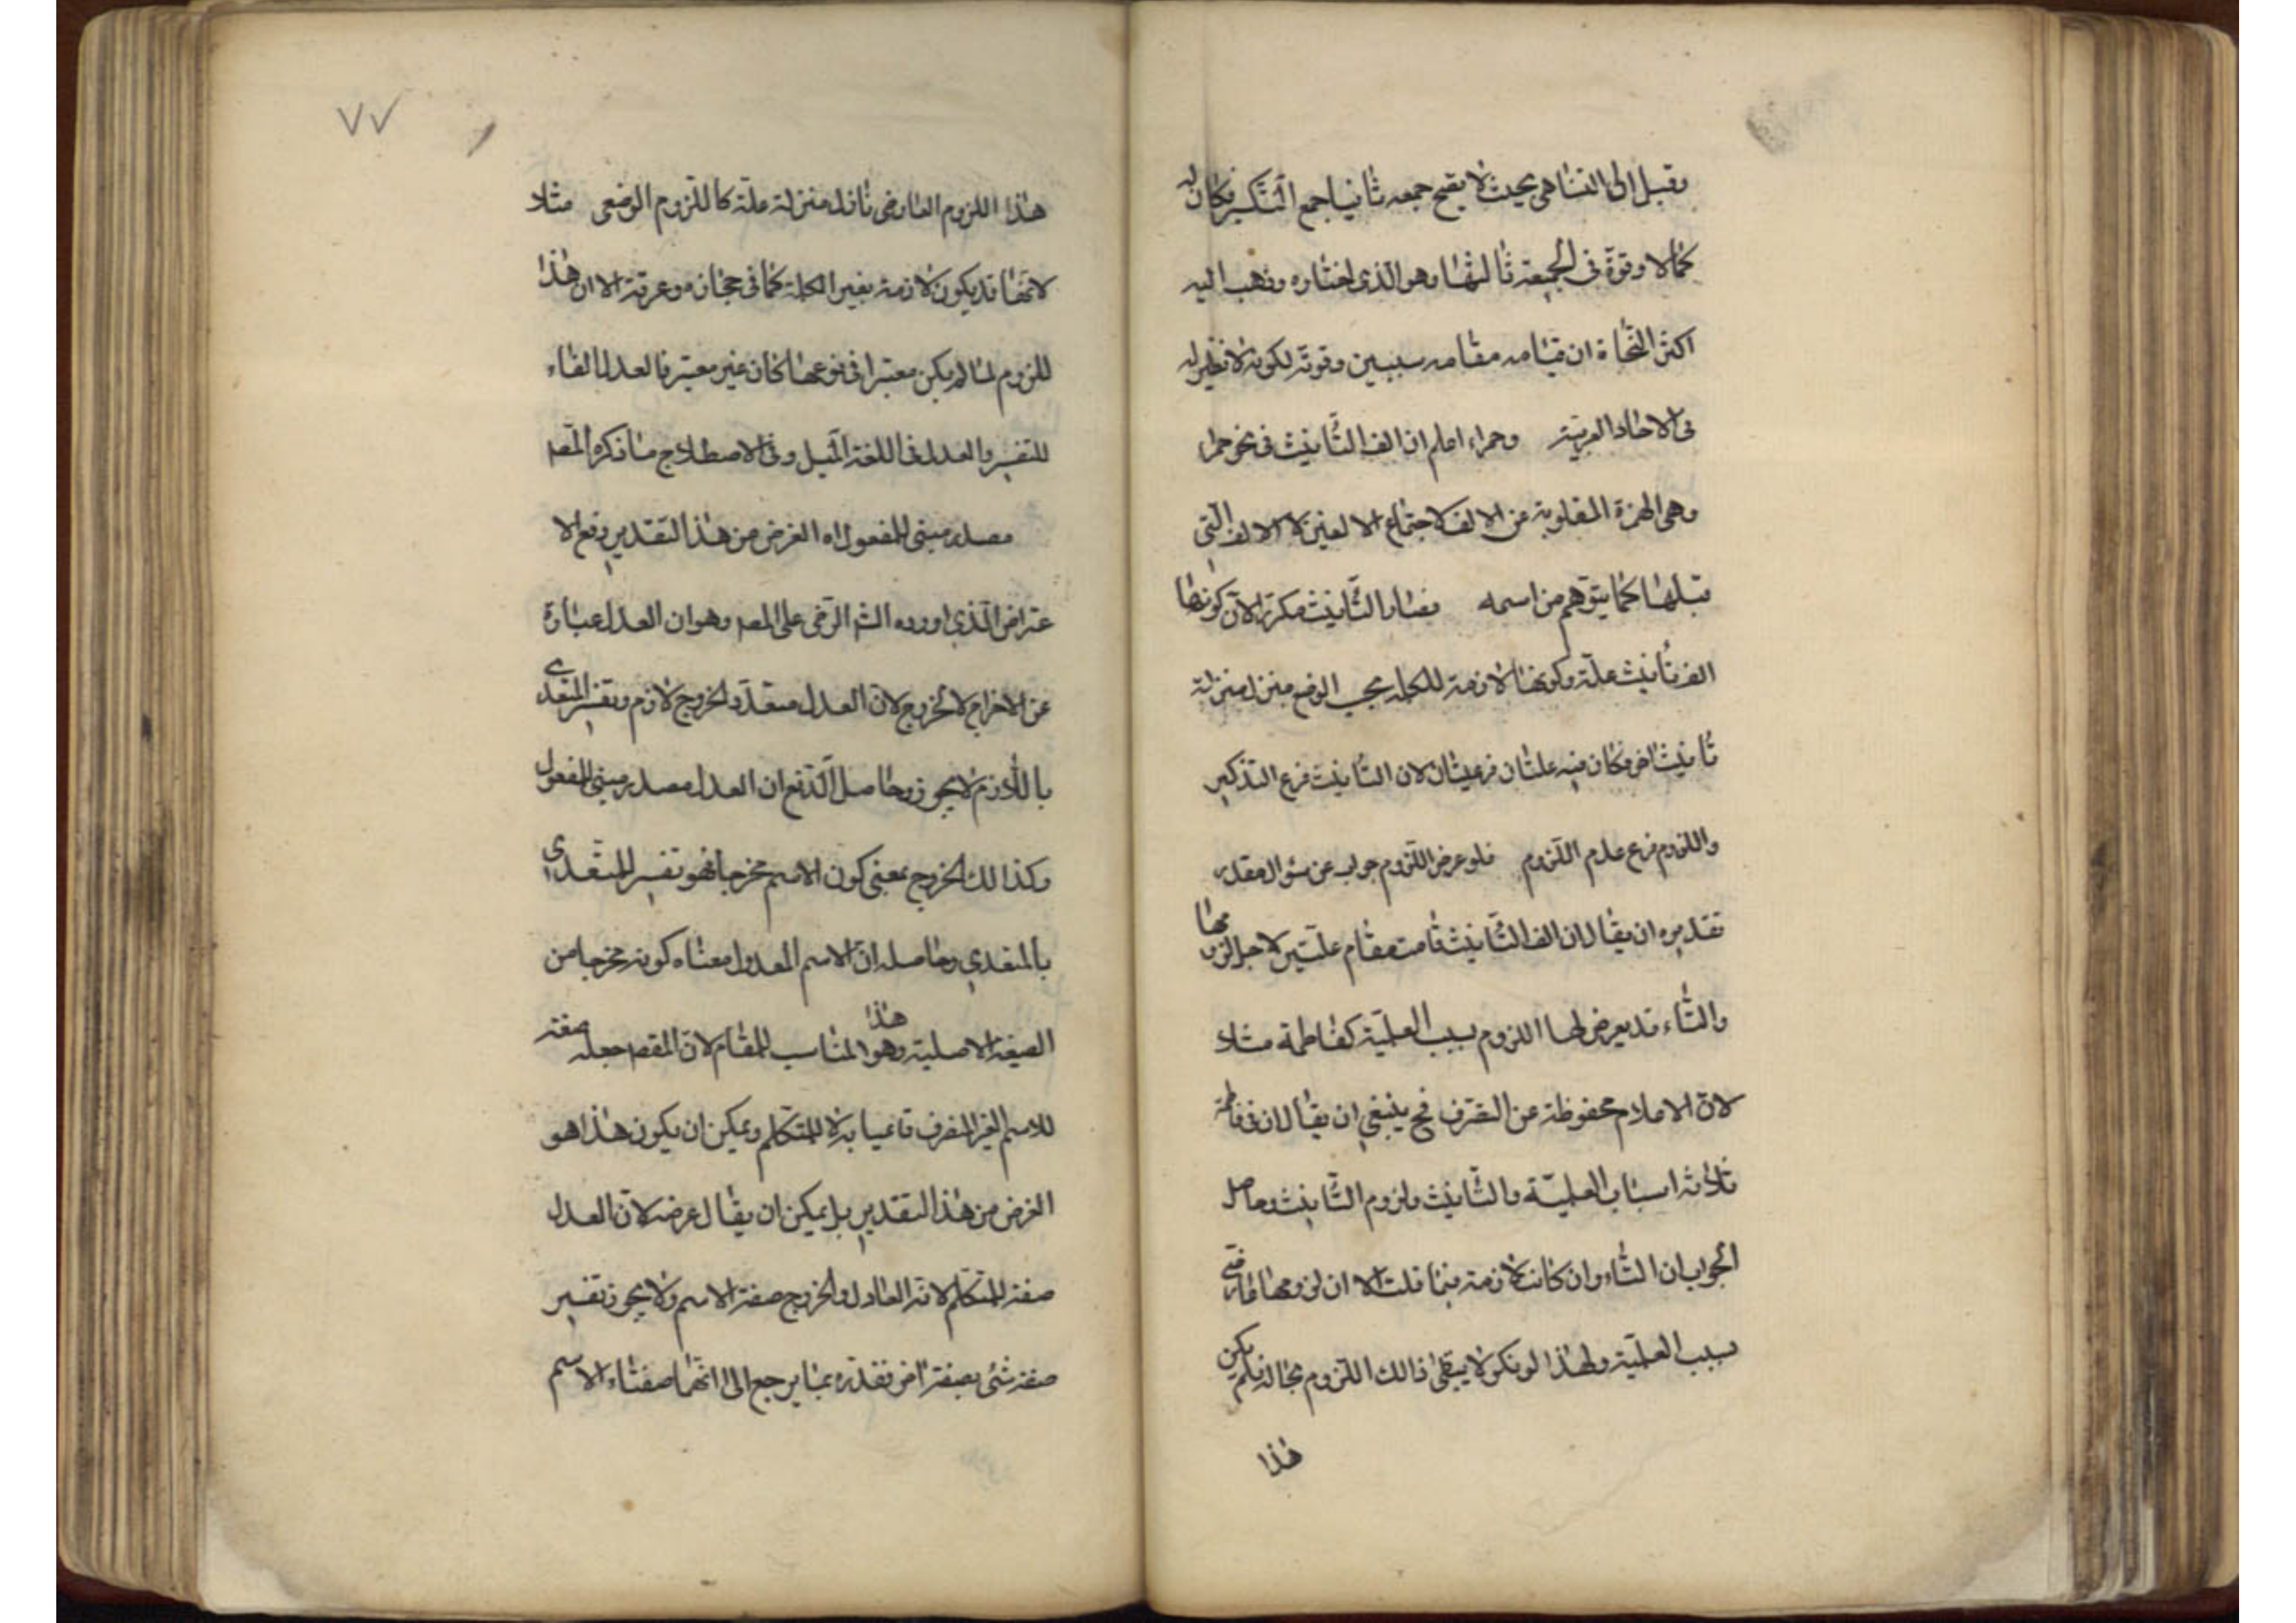 وقيل الى التناهى بحيث لا يصح جمعه ثانيا جمع التكسير فكان له
كمالا وقوة فى الجمعية ثالثها وهو الذى اختاره وذهب اليه
اكثر النحاة ان قيامه مقامه سببين وقوته لكونه لا نظير له
فى الاحاد العربية وحمراء اعلم ان الف التأنيث فى نحو حمرا
وهى الهمزة المقلوبة عن الالف لاجتماع الالفين لا الالف التى
قبلها كما يتوهم من اسمه فصار التأنيث مكررا لان كونها
الف تأنيث علة وكونها لازمة للكلمة بحسب الوضع منزل منزلة
تأنيث اخر فكان فيه علتان فرعيتان لان التأنيث فرع التذكير
واللزوم فرع عدم اللزوم فلو عرض اللزوم جواب عن سؤال مقدر
تقديره ان يقال ان الف التأنيث قامت مقام علتين لاجل لزومها
والتاء قد يعرض لها اللزوم بسبب العلمية كفاطمة مثلا
لان الاعلام محفوظة عن التصرف فح ينبغى ان يقال ان فى فاطمة
ثلاثة اسباب العلمية والتأنيث ولزوم التأنيث وحاصل
الجواب ان التاء وان كانت لازمة فيما قلت الا ان لزومها عارضى
بسبب العلمية ولهذا لو نكر لا يبقى ذالك اللزوم بحاله فلم يكن
هذا
٧٧
هذا اللزوم العارضى نازلا منزلة علة كاللزوم الوضعى مثلا
لانها قد يكون لازمة بغير الكلمة كما فى حجارة وعرقة الا ان هذا
للزوم لما لم يكن معتبرا فى نوعها كان غير معتبر فالعدل الفاء
للتفسير والعدل فى اللغة الميل وفى الاصطلاح ما ذكره المصـ
مصدر مبنى للمفعول اه الغرض من هذا التقدير دفع الا
عتراض الذى اورده الشـ الرضى على المصـ وهو ان العدل عبارة
عن الاخراج لا الخروج لان العدل متعد والخروج لازم وتفسير المتعدى
باللازم لا يجوز وحاصل الدفع ان العدل مصدر مبنى للمفعول
وكذا لك الخروج بمعنى كون الاسم مخرجا فهو تفسير للمتعدى
بالمتعدى وحاصله ان الاسم المعدول معناه كونه مخرجا من
الصيغة الاصلية وهو هذا المناسب للمقام لان المقصـ جعله صفة
للاسم الغير المنصرف قائما به لا للمتكلم ويمكن ان يكون هذا هو
الغرض من هذا التقدير بل يمكن ان يقال غرضه لان العدل
صفة للمتكلم لانه العادل والخروج صفة الاسم ولا يجوز تفسير
صفة شئ بصفة اخر فقدره بما يرجع الى انهما صفتاء الاسم